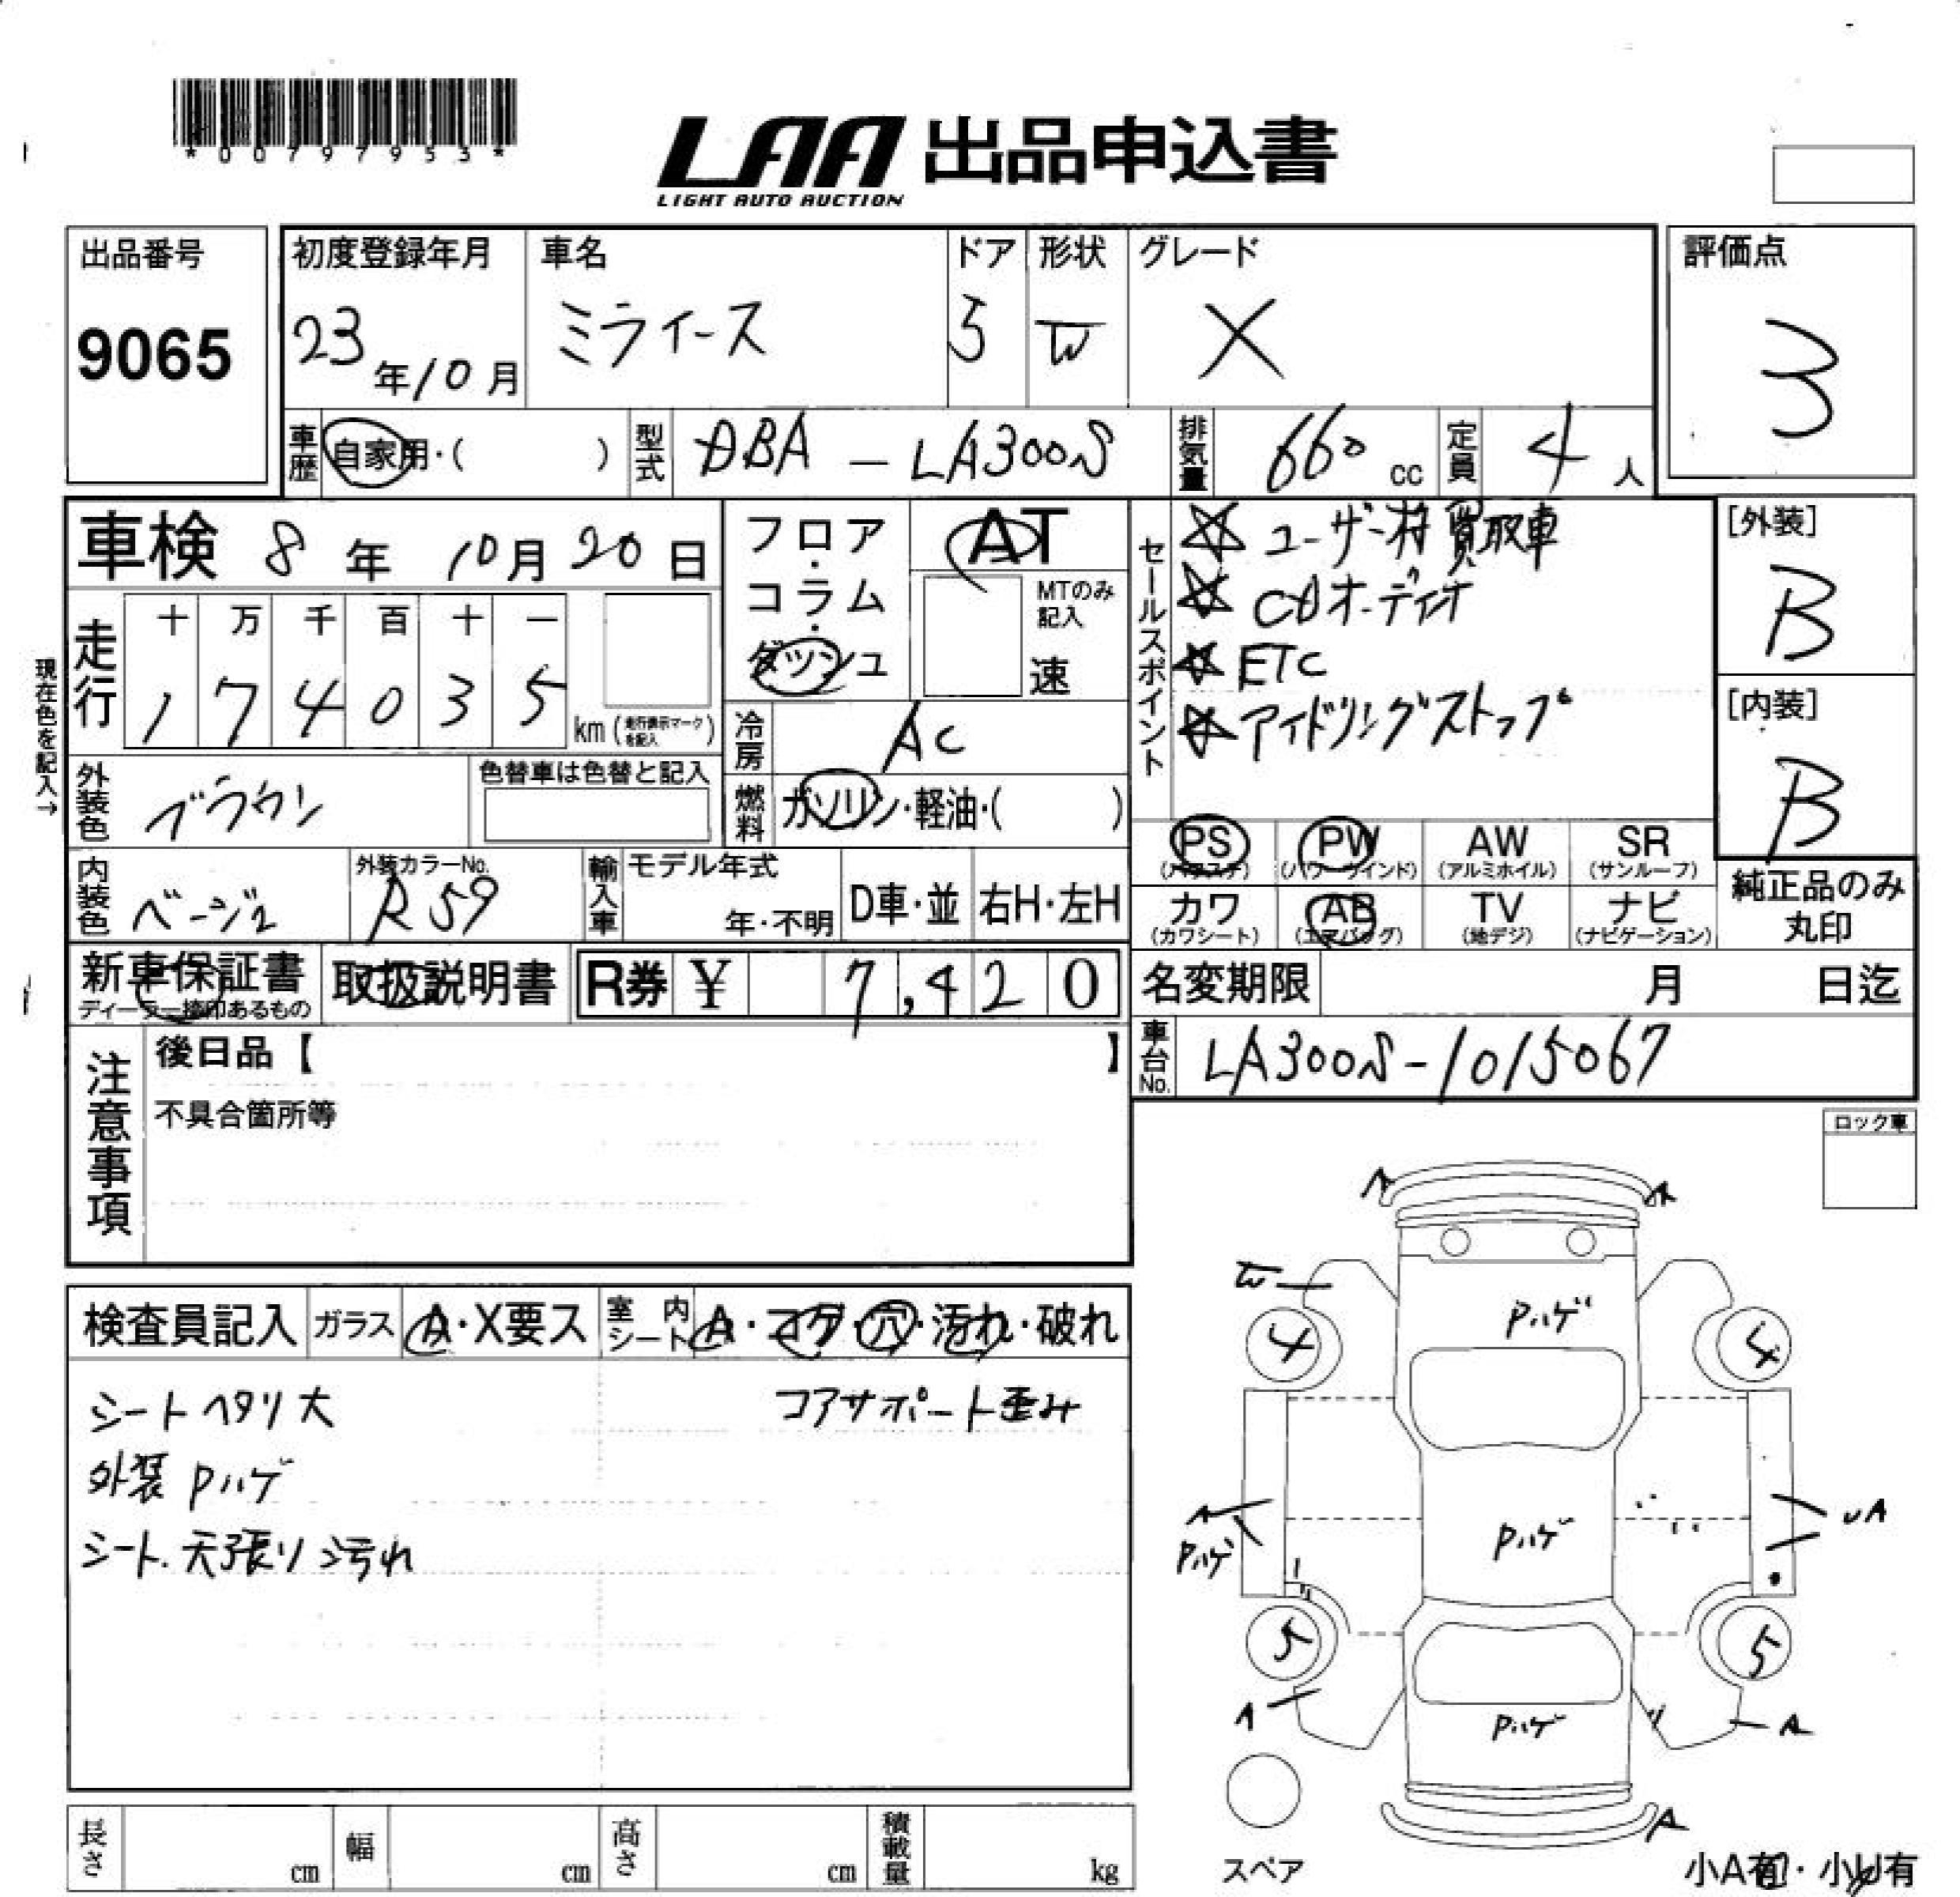 *00797953*
LAA 出品申込書
LIGHT AUTO AUCTION
出品番号
9065
初度登録年月
23年10月
車名
ミライース
ドア
5
形状
W
グレード
X
評価点
3
車歴
自家用・( )
型式
DBA-LA300S
排気量
660 cc
定員
4人
車検 8年 10月 20日
フロア・コラム・ダッシュ
AT
MTのみ記入
速
セールスポイント
☆ユーザー様買取車
☆CDオーディオ
☆ETC
☆アイドリングストップ
[外装]
B
[内装]
B
現在色を記入→
走行
十 万 千 百 十 一
1 7 4 0 3 5
km (走行表示マークを記入)
冷房
AC
外装色
ブラウン
色替車は色替と記入
燃料
ガソリン・軽油・( )
PS (パワステ)
PW (パワーウインド)
AW (アルミホイル)
SR (サンルーフ)
内装色
ベージュ
外装カラーNo.
R59
輸入車
モデル年式
年・不明
D車・並
右H・左H
カワ (カワシート)
AB (エアバッグ)
TV (地デジ)
ナビ (ナビゲーション)
純正品のみ丸印
新車保証書
ディーラー捺印あるもの
取扱説明書
R券 ¥ 7,420
名変期限 月 日迄
車台No.
LA300S-1015067
注意事項
後日品【 】
不具合箇所等
ロック車
検査員記入
ガラス
A・X要ス
室内シート
A・コゲ・穴・汚れ・破れ
シートヘタリ大
コアサポート歪み
外装Pハゲ
シート.天張り汚れ
A
A
W
Pハゲ
4
4
A
Pハゲ
Pハゲ
UA
5
5
A
Pハゲ
A
A
スペア
小A有・小U有
長さ cm
幅 cm
高さ cm
積載量 kg